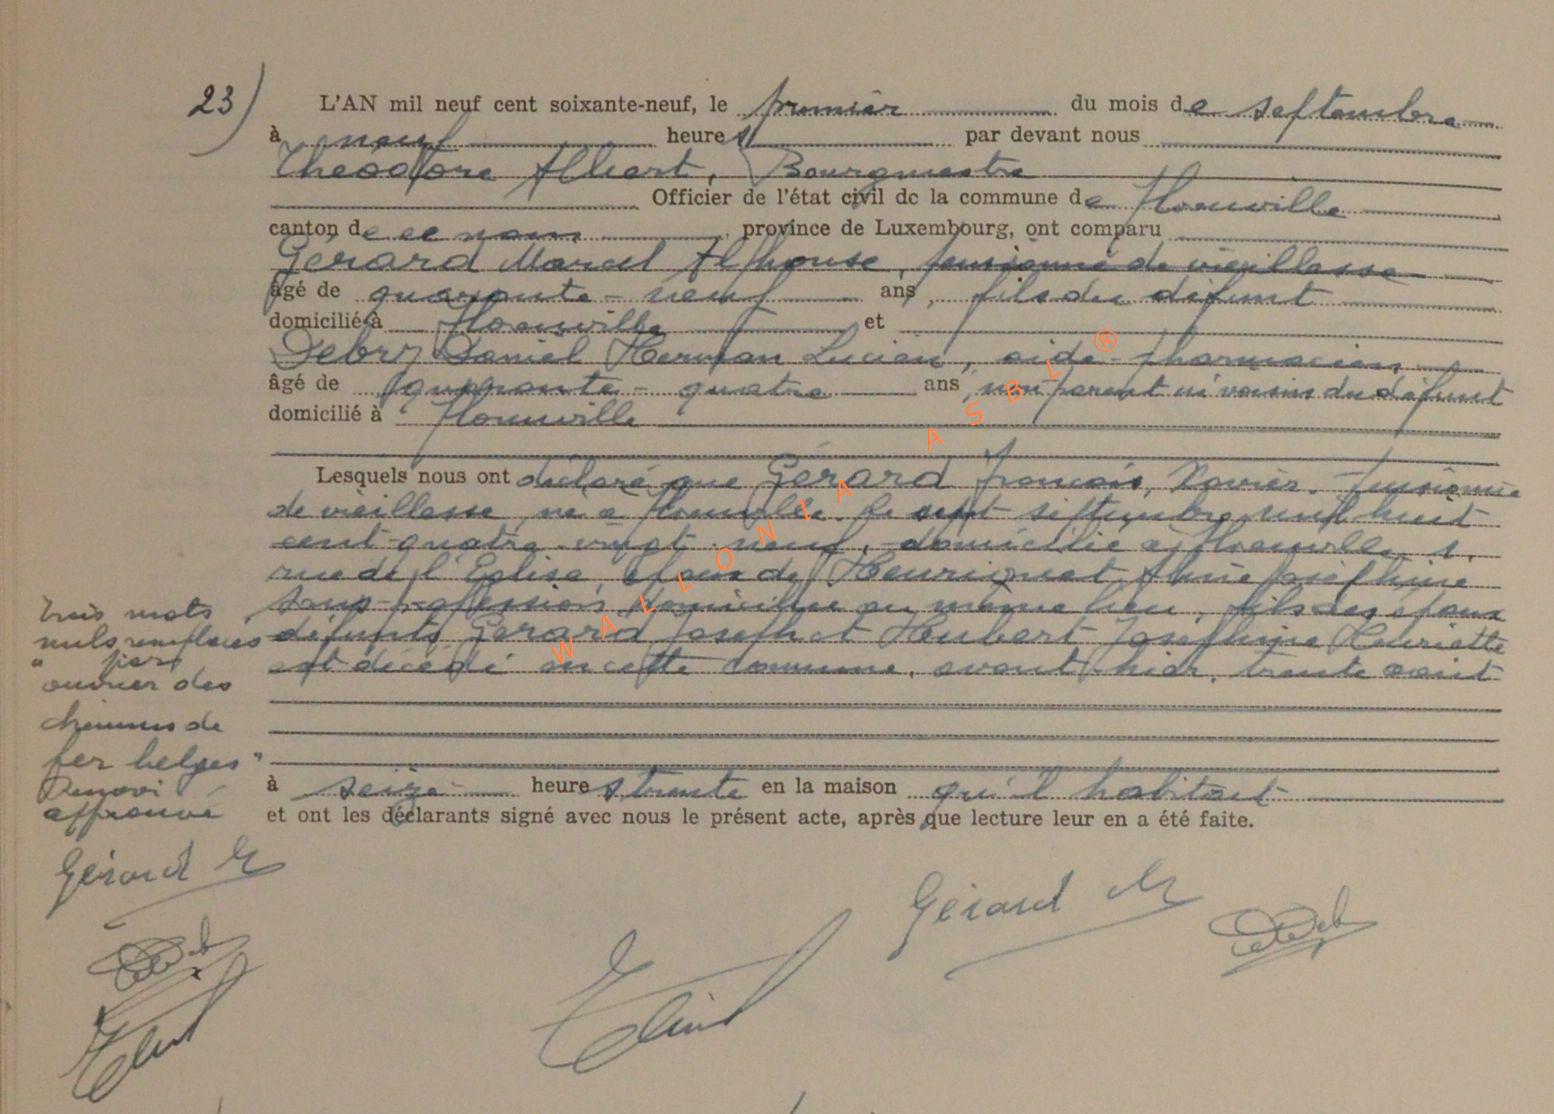 23) L'AN mil neuf cent soixante-neuf, le premier du mois de septembre
à neuf heures par devant nous
Théodore Albert, Bourgmestre
Officier de l'état civil de la commune de Houmville
canton de ce nom, province de Luxembourg, ont comparu
Gérard Marcel Alphonse, pensionné de vieillesse
âgé de quarante-neuf ans, fils du défunt
domicilié à et
Debry Daniel Herman Lucien, aide-pharmacien
âgé de quarante-quatre ans, non parent ni voisin du défunt
domicilié à
Lesquels nous ont déclaré que Gérard François, Xavier. pensionné
de vieillesse, né à le sept septembre mil huit
cent quatre-vingt-neuf, domicilié à 1.
rue de l'Eglise, époux de Henriquet Anne Joséphine
sans profession, domiciliée au même lieu, fils des époux
défunts Gérard Joseph et Hubert Joséphine Henriette
est décédé en cette commune, avant-hier, trente août
à seize heures trente en la maison qu'il habitait
et ont les déclarants signé avec nous le présent acte, après que lecture leur en a été faite.
Trois mots
nuls remplacés
par
"ouvrier des
chemins de
fer belges"
Renvoi
approuvé
Gérard M
Gérard M
WALLONIA ASBL ®